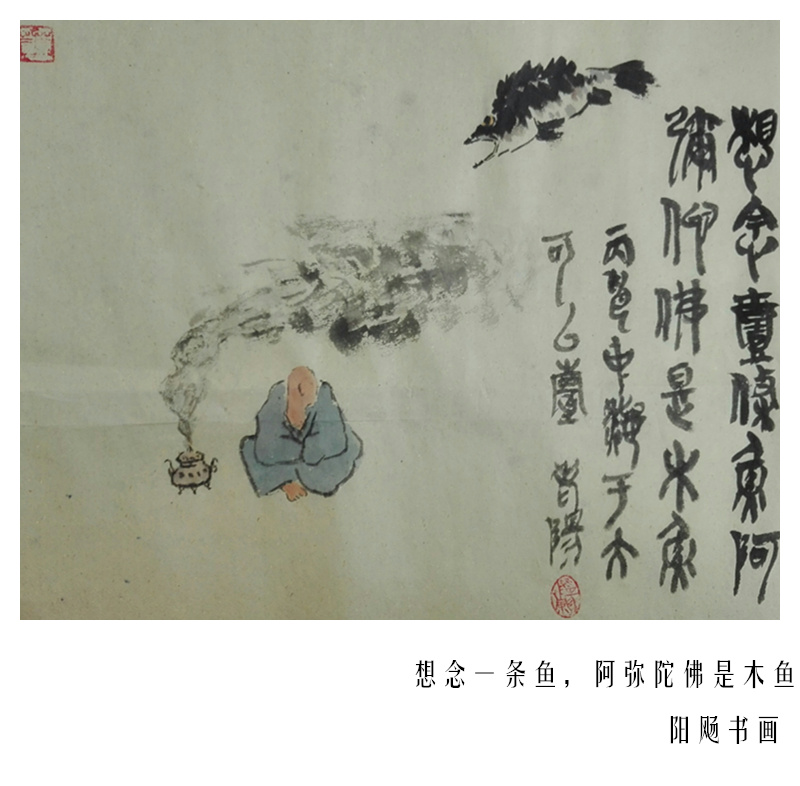 想念壹條魚阿
彌陀佛是木魚
丙中于大
可
想念一条鱼，阿弥陀佛是木鱼
阳飏书画